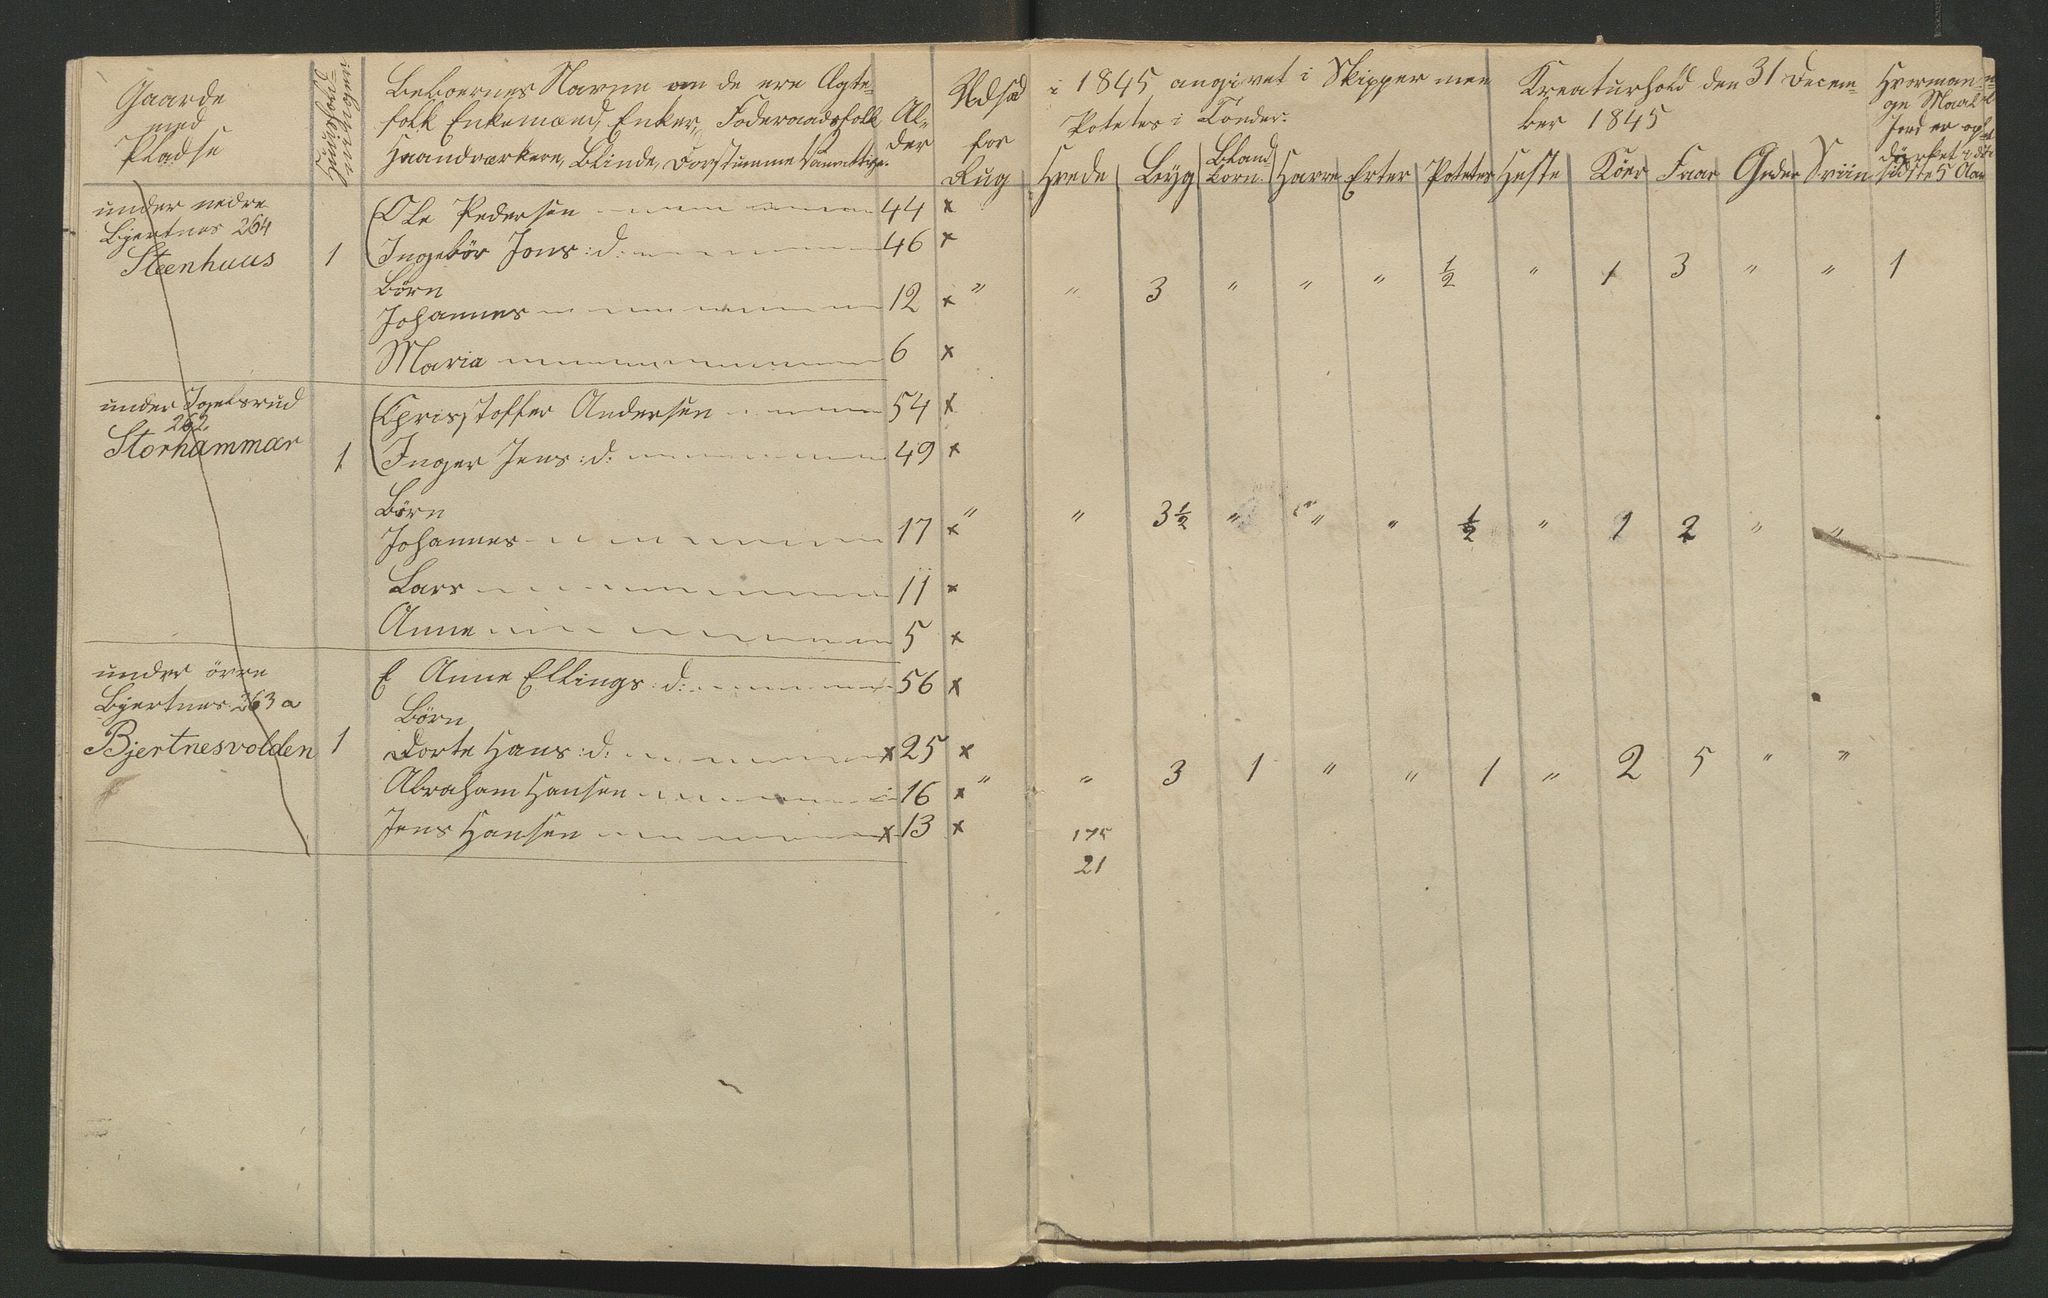 Gaarde
med
Pladse
Huushold-
ninger
Beboernes Navne om de ere Ægte-
folk Enkemænd, Enker, Foderaadsfolk
Haandværkere, Blinde, Døvstumme Vanvittige.
Al-
der
Udsæd
for
Rug
i 1845 angivet i Skipper men
Potetes i Tønder.
Hvede Byg Bland Korn Havre Erter Potetes
Kreaturhold den 31 Decem-
ber 1845
Heste Köer Faar Geder Sviin
Hvor man-
ge Maal
Jord er op
dyrket i de
sidste 5 Aar
under nedre
Bjertnes 264
Steenhuus 1
Ole Pedersen 44 x
Ingebör Jons:d: 46 x
Börn
Johannes 12 x " " 3 " " " 1/2 " 1 3 " " 1
Maria 6 x
under Igelsrud
262
Storhammar 1
Christoffer Andersen 54 x
Inger Jens:d: 49 x
Börn
Johannes 17 x " " 3 1/2 " " " 1/2 " 1 2 " "
Lars 11 x
Anne 5 x
under övre
Bjertnes 263 a
Bjertnesvolden 1
E Anne Ellings:d: 56 x
Börn
Dorte Hans:d: x 25 x
Abraham Hansen 16 x " " 3 1 " " 1 " 2 5 " "
Jens Hansen x 13 x
175
21